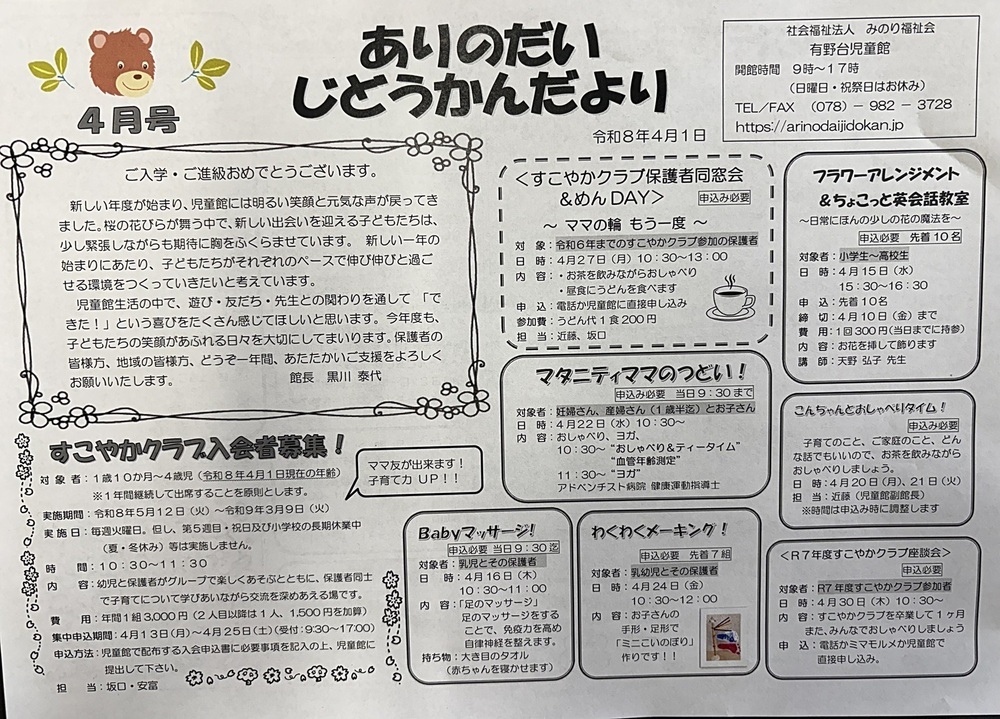 4月号
ありのだい
じどうかんだより
社会福祉法人　みのり福祉会
有野台児童館
開館時間　９時～１７時
（日曜日・祝祭日はお休み）
TEL／FAX　（078）－982－3728
https://arinodaijidokan.jp
令和８年４月１日
ご入学・ご進級おめでとうございます。
新しい年度が始まり、児童館には明るい笑顔と元気な声が戻ってき
ました。桜の花びらが舞う中で、新しい出会いを迎える子どもたちは、
少し緊張しながらも期待に胸をふくらませています。　新しい一年の
始まりにあたり、子どもたちがそれぞれのペースで伸び伸びと過ご
せる環境をつくっていきたいと考えています。
児童館生活の中で、遊び・友だち・先生との関わりを通して　「で
きた！」という喜びをたくさん感じてほしいと思います。今年度も、
子どもたちの笑顔があふれる日々を大切にしてまいります。保護者の
皆様方、地域の皆様方、どうぞ一年間、あたたかいご支援をよろしく
お願いいたします。　　館長　黒川　泰代
＜すこやかクラブ保護者同窓会
＆めんDAY＞　申込み必要
～　ママの輪　もう一度　～
対　象：令和６年までのすこやかクラブ参加の保護者
日　時：４月27日（月）10：30～13：00
内　容：・お茶を飲みながらおしゃべり
・昼食にうどんを食べます
申　込：電話か児童館に直接申し込み
参加費：うどん代１食200円
担　当：近藤、坂口
フラワーアレンジメント
＆ちょこっと英会話教室
～日常にほんの少しの花の魔法を～
申込必要　先着10名
対象者：小学生～高校生
日　時：４月15日（水）
15：30～16：30
申　込：先着10名
締　切：４月10日（金）まで
費　用：1回300円（当日までに持参）
内　容：お花を挿して飾ります
講　師：天野　弘子　先生
マタニティママのつどい！
申込み必要　当日９：30まで
対象者：妊婦さん、産婦さん（１歳半迄）とお子さん
日　時：４月22日（水）10：30～
内　容：おしゃべり、ヨガ、
10：30～　“おしゃべり＆ティータイム”
“血管年齢測定”
11：30～　“ヨガ”
アドベンチスト病院　健康運動指導士
こんちゃんとおしゃべりタイム！
申込み必要
子育てのこと、ご家庭のこと、どん
な話でもいいので、お茶を飲みながら
おしゃべりしましょう。
日　時：４月20日（月）、21日（火）
担　当：近藤（児童館副館長）
※時間は申込み時に調整します
すこやかクラブ入会者募集！
対　象　者：１歳１０か月～４歳児（令和８年４月１日現在の年齢）
※１年間継続して出席することを原則とします。
実施期間：令和８年５月12日（火）～令和９年３月９日（火）
実　施　日：毎週火曜日。但し、第５週目・祝日及び小学校の長期休業中
（夏・冬休み）等は実施しません。
時　　間：10：30～11：30
内　　容：幼児と保護者がグループで楽しくあそぶとともに、保護者同士
で子育てについて学びあいながら交流を深めあえる場です。
費　　用：年間１組3,000円（２人目以降は１人、1,500円を加算）
集中申込期間：４月13日（月）～４月25日（土）（受付：9:30～17:00）
申込方法：児童館で配布する入会申込書に必要事項を記入の上、児童館に
提出して下さい。
担　　当：坂口・安富
ママ友が出来ます！
子育て力　UP！！
Babyマッサージ！
申込必要　当日9：30迄
対象者：乳児とその保護者
日　時：４月16日（木）
10：30～11：00
内　容：「足のマッサージ」
足のマッサージをする
ことで、免疫力を高め
自律神経を整えます。
持ち物：大き目のタオル
（赤ちゃんを寝かせます）
わくわくメーキング！
申込み必要　先着７組
対象者：乳幼児とその保護者
日　時：４月24日（金）
10：30～12：00
内　容：お子さんの
手形・足形で
「ミニこいのぼり」
作りです！！
＜R７年度すこやかクラブ座談会＞
申込み必要
対象者：R7年度すこやかクラブ参加者
日　時：４月30日（木）10：30～
内　容：すこやかクラブを卒業して１ヶ月
また、みんなでおしゃべりしましょう
申　込：電話かミマモルメか児童館で
直接申し込み。